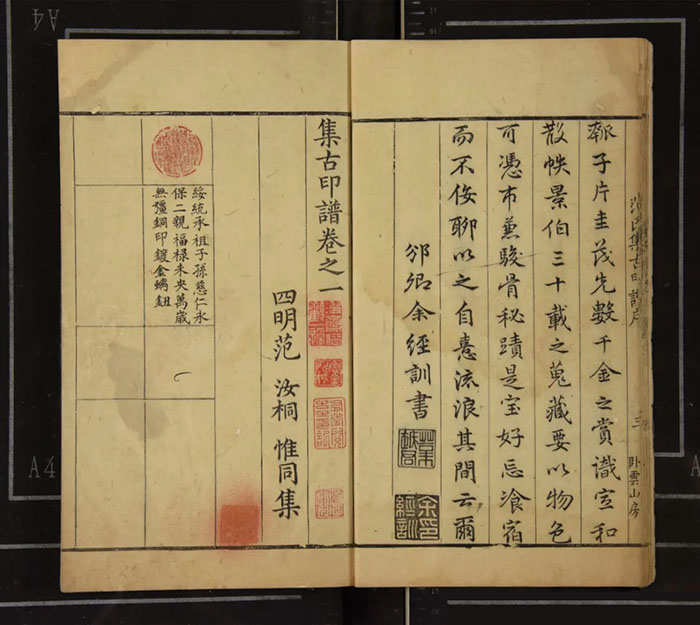 集古印譜序
三
卧雲山房
子片圭茂先數千金之賞識宣和
散帙景伯三十載之蒐藏要以物色
可憑市駿骨秘蹟是宝好忘飡宿
而不侫聊以之自憙流浪其間云爾
邠卿余經訓書
余印經訓
集古印譜卷之一
四明范 汝桐 惟同集
綏統承祖子孫慈仁永
保二親福祿未央萬歲
無彊銅印鍍金螭鈕
A4
A4